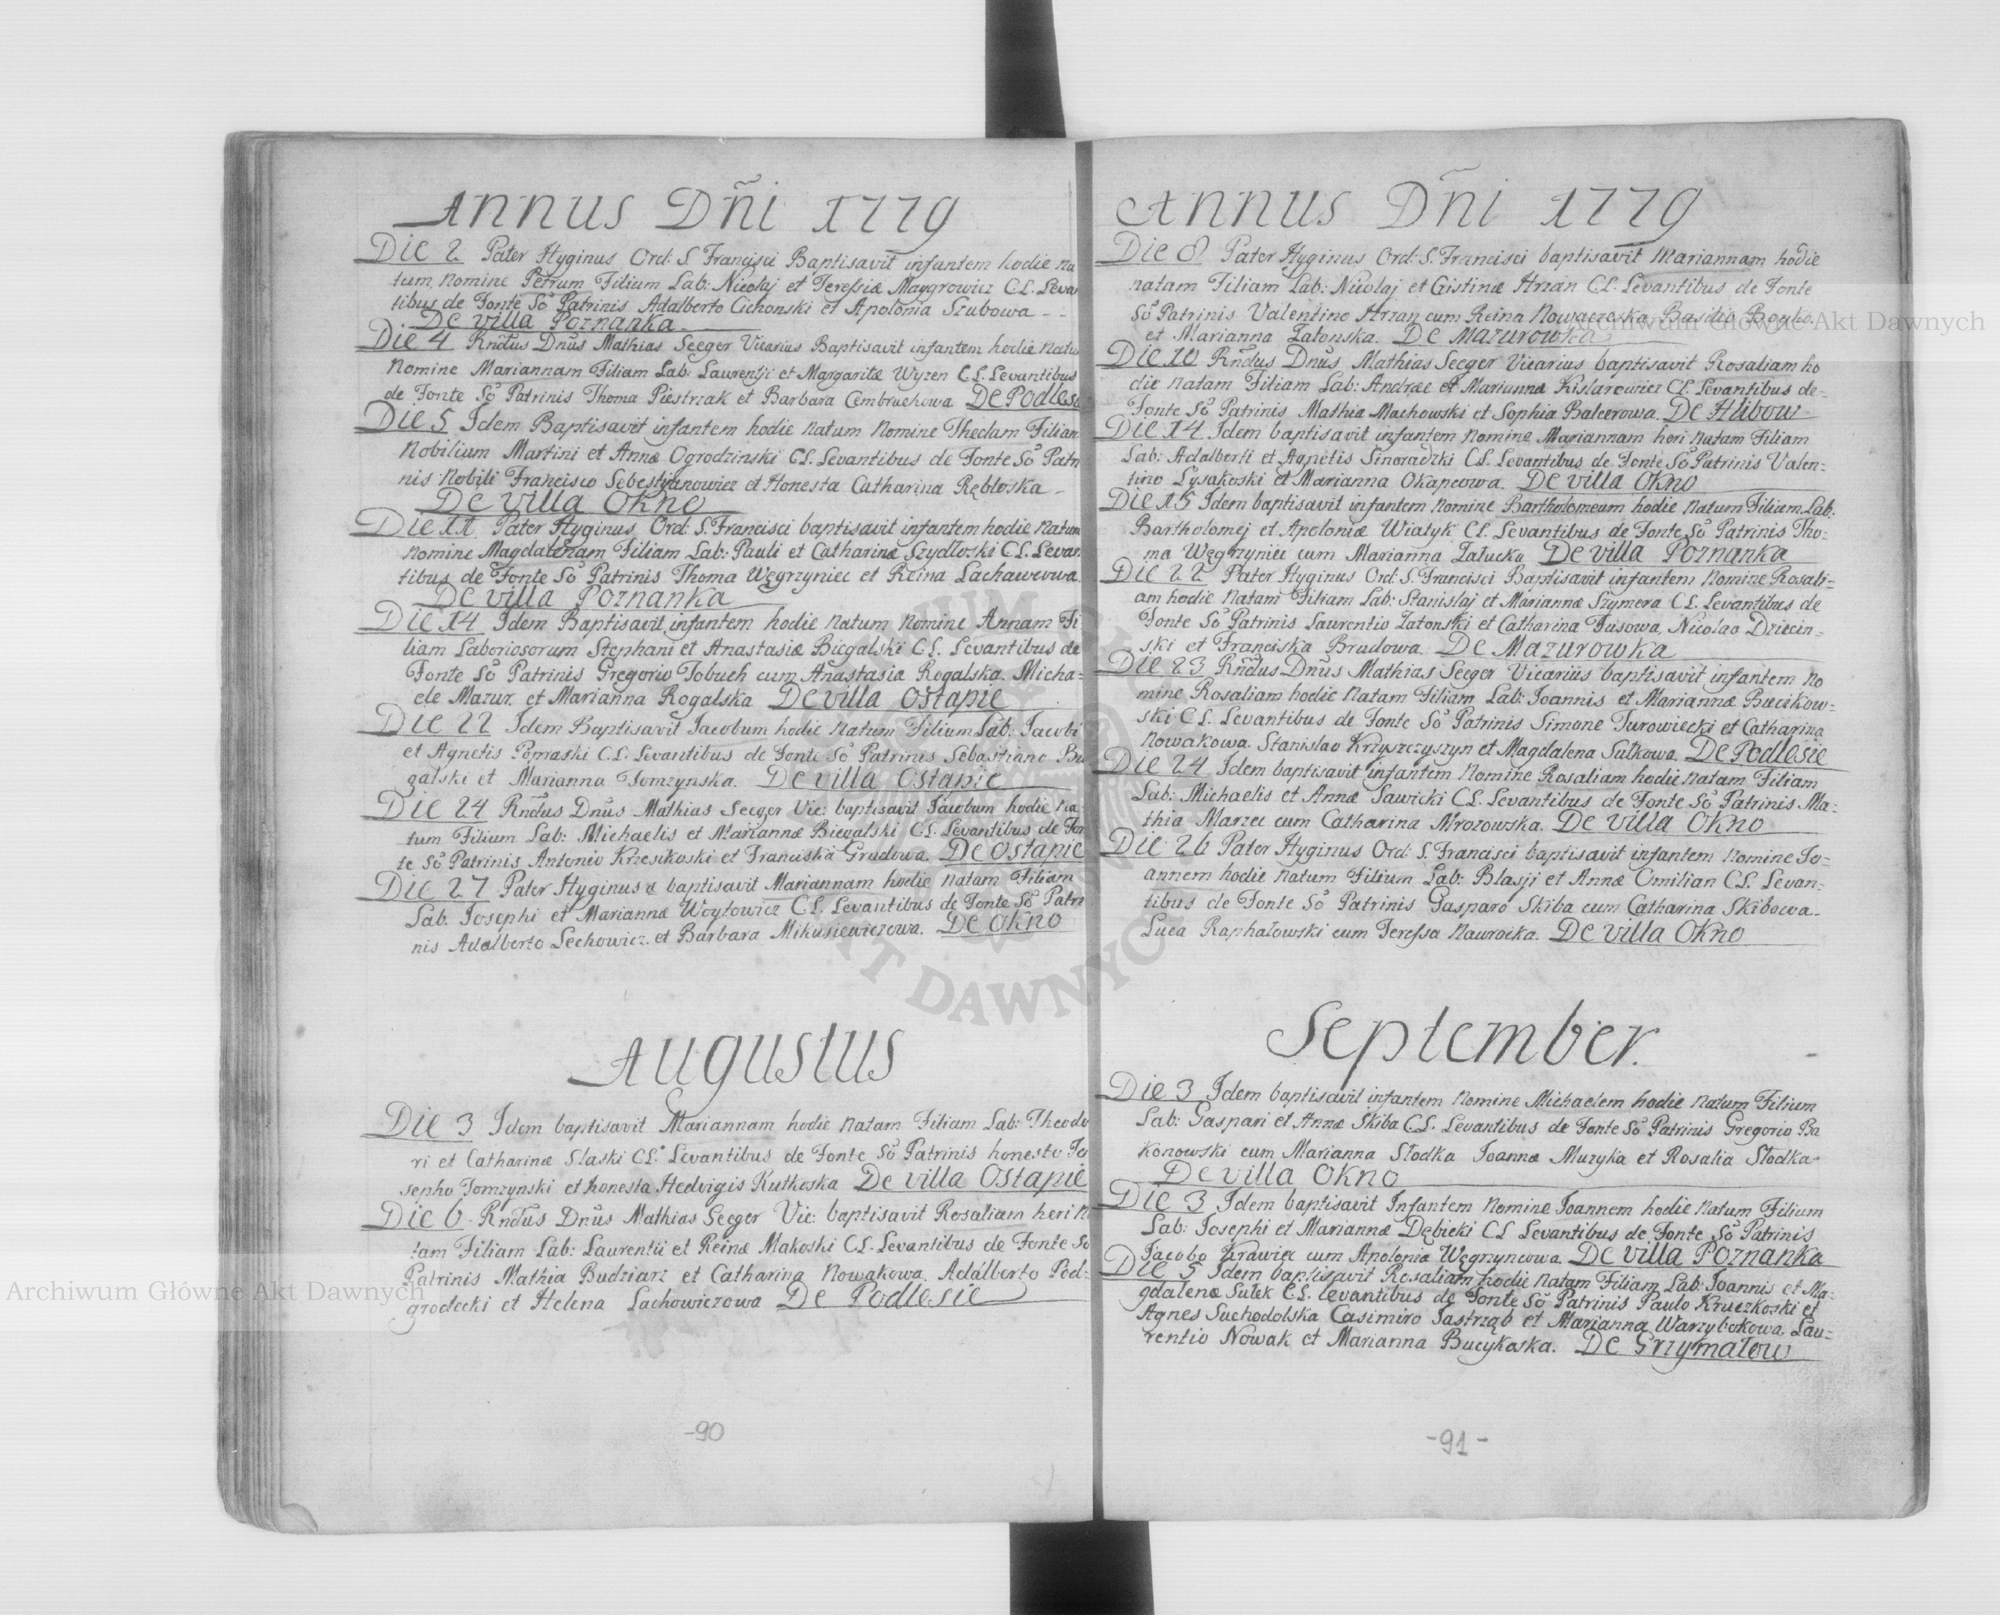 Annus Dñi 1779
Die 2 Pater Hyginus Ord: S. Francisci Baptisavit infantem hodie na
tum, nomine Petrum Filium Lab: Nicolaj et Teressiæ Maygrowicz C.L. Levan
tibus de Fonte Sō Patrinis Adalberto Cichonski et Apolonia Szubowa - -
De villa Poznanka
Die 4 Rndus Dnus Mathias Seeger Vicarius Baptisavit infantem hodie natu
nomine Mariannam Filiam Lab: Laurentji et Margaritæ Wyzen C.L. Levantibus
de Fonte Sō Patrinis Thoma Piestrzak et Barbara Cembruchowa De Podlesi
Die 5 Idem Baptisavit infantem hodie natum nomine Theclam Filian
Nobilium Martini et Annæ Ogrodzinski C.L. Levantibus de Fonte Sō Patri
nis Nobili Francisco Sebestyanowicz et Honesta Catharina Rębloska -
De villa Okno
Die 11 Pater Hyginus Ord: S. Francisci baptisavit infantem hodie natum
nomine Magdalenam Filiam Lab: Pauli et Catharinæ Szydloski C.L. Levan
tibus de Fonte Sō Patrinis Thoma Węgrzyniec et Reina Lachawcowa.
De villa Poznanka
Die 14 Idem Baptisavit infantem hodie natum nomine Annam Fi
liam Laboriosorum Stephani et Anastasiæ Biegalski C.L. Levantibus de
Fonte Sō Patrinis Gregorio Tobuch cum Anastasia Rogalska. Micha-
ele Mazur et Marianna Rogalska De villa Ostapie
Die 22 Idem Baptisavit Jacobum hodie natum Filium Lab: Jacobi
et Agnetis Pomaski C.L. Levantibus de Fonte Sō Patrinis Sebastiano Bie
galski et Marianna Tomzynska. De villa Ostapie
Die 24 Rndus Dnus Mathias Seeger Vic: baptisavit Jacobum hodie na
tum Filium Lab: Michaelis et Mariannæ Biegalski C.L. Levantibus de Fon
te Sō Patrinis Antonio Krzesikoski et Franciska Grudowa. De Ostapie
Die 27 Pater Hyginus baptisavit Mariannam hodie natam Filiam
Lab. Josephi et Mariannæ Woytowicz C.L. Levantibus de Fonte Sō Patri
nis Adalberto Lechowicz et Barbara Mikusiewiczowa. De Okno
Augustus
Die 3 Idem baptisavit Mariannam hodie natam Filiam Lab: Theodo
ri et Catharinæ Slaski C.L. Levantibus de Fonte Sō Patrinis honesto Jo
sepho Tomzynski et honesta Hedvigis Rutkoska De villa Ostapie
Die 6 Rndus Dnus Mathias Seeger Vic: baptisavit Rosaliam heri n
tam Filiam Lab: Laurentii et Reinæ Makoski C.L. Levantibus de Fonte Sō
Patrinis Mathia Budziarz et Catharina Nowakowa. Adalberto Pod-
grodecki et Helena Lachowiczowa De Podlesie
-90
Annus Dñi 1779
Die 8 Pater Hyginus Ord: S. Francisci baptisavit Mariannam hodie
natam Filiam Lab: Nicolaj et Cristinæ Hrzan C.L. Levantibus de Fonte
Sō Patrinis Valentino Hrzan cum Reina Nowaczoska, Basilio Boyko
et Marianna Zatonska. De Mazurowka
Die 10 Rndus Dnus Mathias Seeger Vicarius baptisavit Rosaliam ho
die natam Filiam Lab: Andræe et Marianna Kislarewicz C.L. Levantibus de-
Fonte Sō Patrinis Mathia Machowski et Sophia Balcerowa. De Hlibow
Die 14 Idem baptisavit infantem nomine Mariannam heri natam Filiam
Lab: Adalberti et Agnetis Sinoradzki C.L. Levantibus de Fonte Sō Patrinis Valen-
tino Lysakoski et Marianna Okapcowa. De villa Okno
Die 15 Idem baptisavit infantem nomine Bartholomeum hodie natum Filium Lab:
Bartholomej et Apoloniæ Wiatyk C.L. Levantibus de Fonte Sō Patrinis Tho-
ma Węgrzyniec cum Marianna Załucka De villa Poznanka
Die 22 Pater Hyginus Ord: S. Francisci Baptisavit infantem nomine Rosali-
am hodie natam Filiam Lab: Stanislaj et Mariannæ Szymera C.L. Levantibus de
Fonte Sō Patrinis Laurentio Zatonski et Catharina Fusowa, Nicolao Dziecin-
ski et Franciska Brudowa. De Mazurowka
Die 23 Rndus Dnus Mathias Seeger Vicarius baptisavit infantem no
mine Rosaliam hodie natam Filiam Lab: Joannis et Mariannæ Bucikow-
ski C.L. Levantibus de Fonte Sō Patrinis Simone Turowiecki et Catharina
Nowakowa. Stanislao Krzyszczyszyn et Magdalena Sutkowa. De Podlesie
Die 24 Idem baptisavit infantem nomine Rosaliam hodie natam Filiam
Lab: Michaelis et Annæ Sawicki C.L. Levantibus de Fonte Sō Patrinis Ma-
thia Marzec cum Catharina Mrozowska. De villa Okno
Die 26 Pater Hyginus Ord: S. Francisci baptisavit infantem nomine Jo-
annem hodie natum Filium Lab: Blasji et Annæ Omilian C.L. Levan-
tibus de Fonte Sō Patrinis Gasparo Skiba cum Catharina Skibowa-
Luca Raphałowski cum Teressa Nawrocka. De villa Okno
September.
Die 3 Idem baptisavit infantem nomine Michaelem hodie natum Filium
Lab: Gaspari et Annæ Skiba C.L. Levantibus de Fonte Sō Patrinis Gregorio Ba
konowski cum Marianna Słodka Joanne Muzyka et Rosalia Słodka
De villa Okno
Die 3 Idem baptisavit Infantem nomine Joannem hodie natum Filium
Lab: Josephi et Mariannæ Dębicki C.L. Levantibus de Fonte Sō Patrinis
Jacobo Krawiec cum Apolonia Węgrzyncowa. De villa Poznanka
Die 5 Idem baptisavit Rosaliam hodie natam Filiam Lab: Joannis et Ma-
gdalenæ Sutek C.L. levantibus de Fonte Sō Patrinis Paulo Kruczkoski et
Agnes Suchodolska Casimiro Jastrząb et Marianna Warzybokowa, Lau-
rentio Nowak et Marianna Bucykoska. De Grzymałow
-91-
Archiwum Główne Akt Dawnych
Archiwum Główne Akt Dawnych